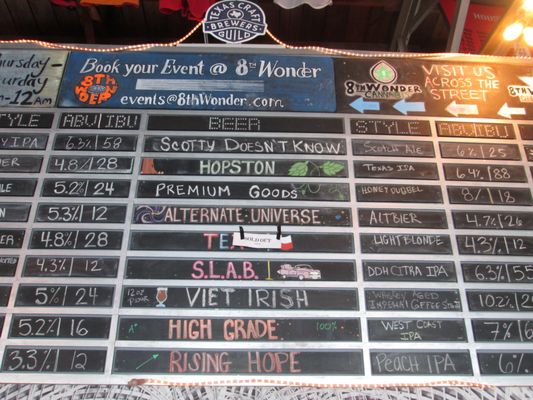 TEXAS CRAFT
BREWERS
GUILD
Thursday-
Saturday
-12 AM
Book your Event @ 8th Wonder
8TH WONDER
events@8thWonder.com
8TH WONDER
CANNABIS
VISIT US
ACROSS THE
STREET
STYLE ABV/IBU BEER STYLE ABV/IBU
IPA 6.3% | 58 SCOTTY DOESN'T KNOW SCOTCH ALE 6% | 25
4.8% | 28 HOPSTON TEXAS IPA 6.4% | 88
5.2% | 24 PREMIUM GOODS HONEY DUBBEL 8% | 18
5.3% | 12 ALTERNATE UNIVERSE ALTBIER 4.7% | 26
4.8% | 28 TE SOLD OUT LIGHT BLONDE 4.3% | 12
4.3% | 12 S.L.A.B. DDH CITRA IPA 6.3% | 55
5% | 24 12oz POUR VIET IRISH WHISKEY AGED IMPERIAL COFFEE 10.2% | 
5.2% | 16 HIGH GRADE 100% WEST COAST IPA 7% | 
3.3% | 12 RISING HOPE PEACH IPA 6% |